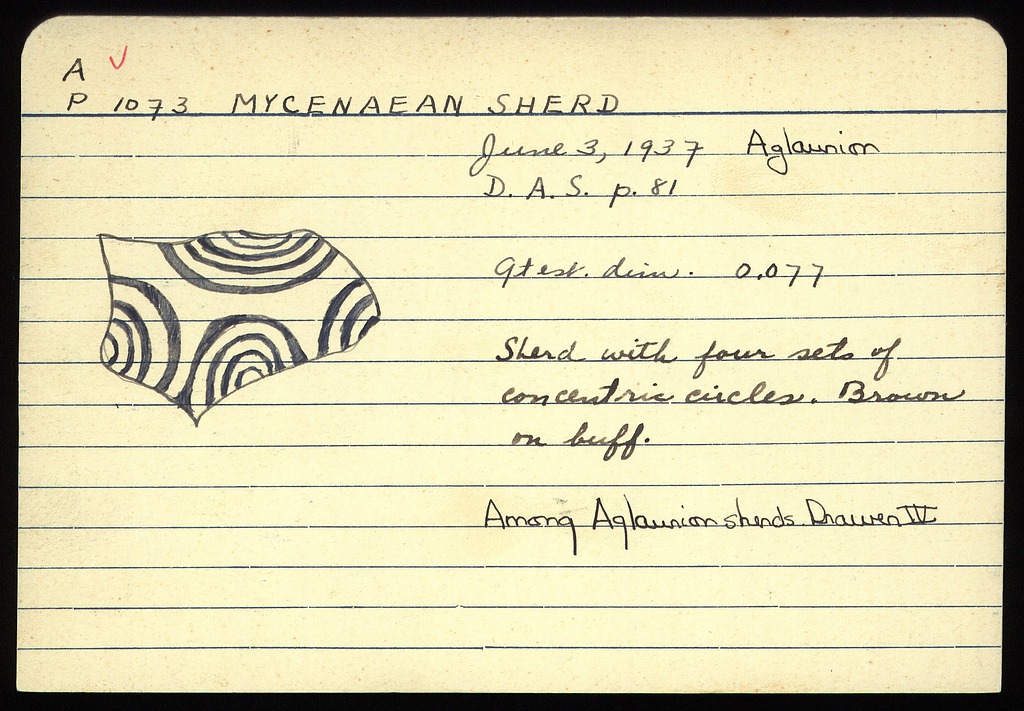 A
P 1073 MYCENAEAN SHERD
June 3, 1937 Aglaurion
D. A. S. p. 81
Gtest. dim. 0.077
Sherd with four sets of
concentric circles. Brown
on buff.
Among Aglaurion sherds. Drawer III